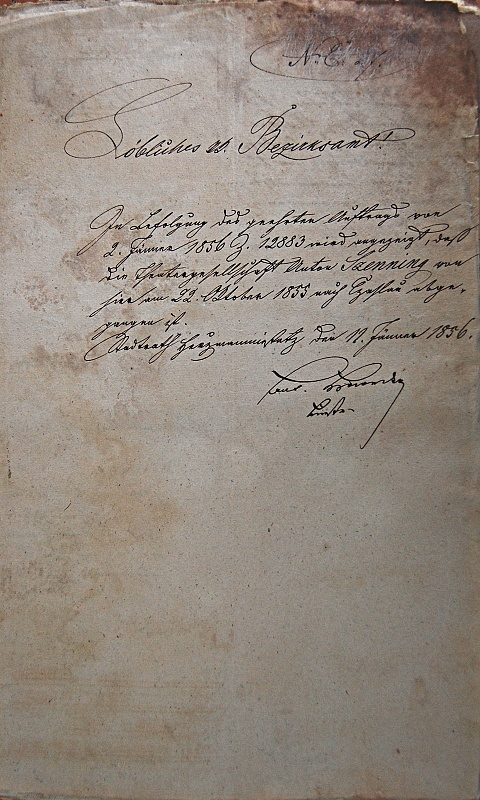 Löbliches k.k. Bezirksamt!
In Befolgung des geehrten Auftrags vom
2. Jänner 1856 Z. 12883 wird angezeigt, daß
die Theatergesellschaft Anton Szenning von
hier am 22. Oktober 1855 nach Czaslau abge-
gangen ist.
Stadtrath Hermannměstetz den 17. Jänner 1856.